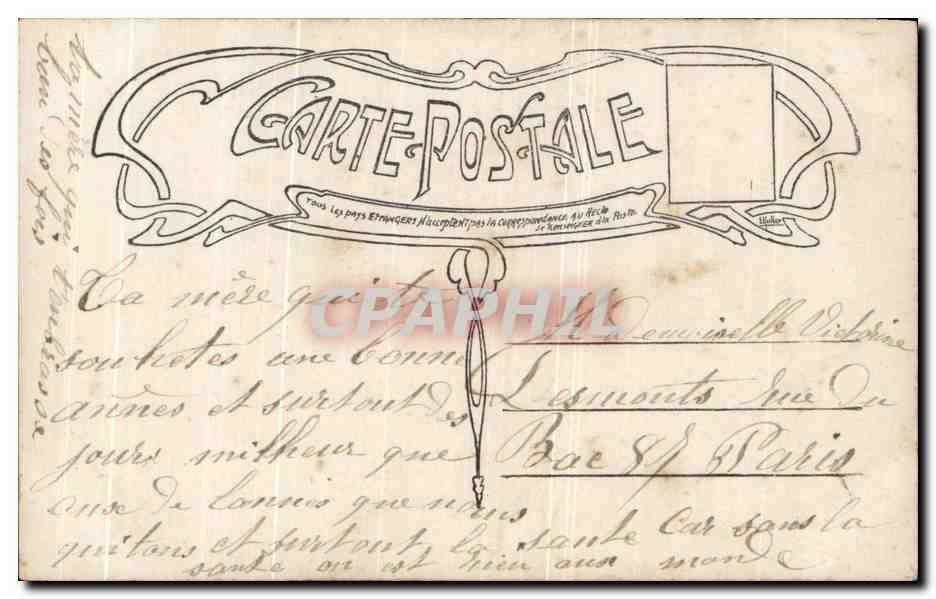 CARTE-POSTALE
Tous les pays Etrangers n'acceptent pas la Correspondance au Recto
Se renseigner à la Poste
Ta mère qui te
souhetes une bonne
annes et surtout des
jours milheur que
euse de lannés que nous
quitons et surtout la sante car sans la
sante on est rien aux monde
Ta mère qui t'anbrasse
bien des fois
Mademoiselle Victorine
Lesmonts rue du
Bac 87 Paris
CPAPHIL